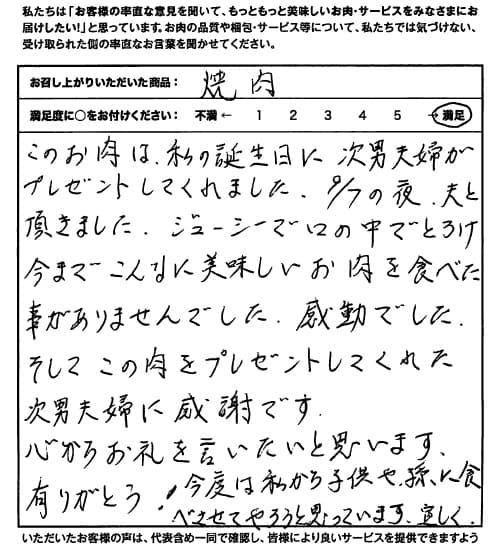 私たちは「お客様の率直な意見を聞いて、もっともっと美味しいお肉・サービスをみなさまにお
届けしたい!」と思っています。お肉の品質や梱包・サービス等について、私たちでは気づけない、
受け取られた側の率直なお言葉を聞かせてください。
お召し上がりいただいた商品： 焼肉
満足度に○をお付けください： 不満 ← 1 2 3 4 5 → 満足
このお肉は、私の誕生日に次男夫婦が
プレゼントしてくれました。9/7の夜、夫と
頂きました。ジューシーで口の中でとろけ
今までこんなに美味しいお肉を食べた
事がありませんでした。感動でした。
そしてこの肉をプレゼントしてくれた
次男夫婦に感謝です。
心からお礼を言いたいと思います、
有りがとう！今度は私から子供や、孫、に食
べさせてやろうと思っています、宜しく、
いただいたお客様の声は、代表含め一同で確認し、皆様により良いサービスを提供できますよう